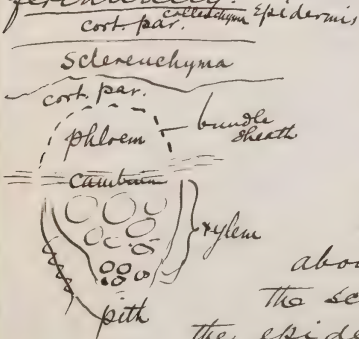 collenchyma epidermis
cort. par.
Sclerenchyma
cort. par.
phloem
bundle
sheath
cambium
xylem
pith
abou
the sc
the epide